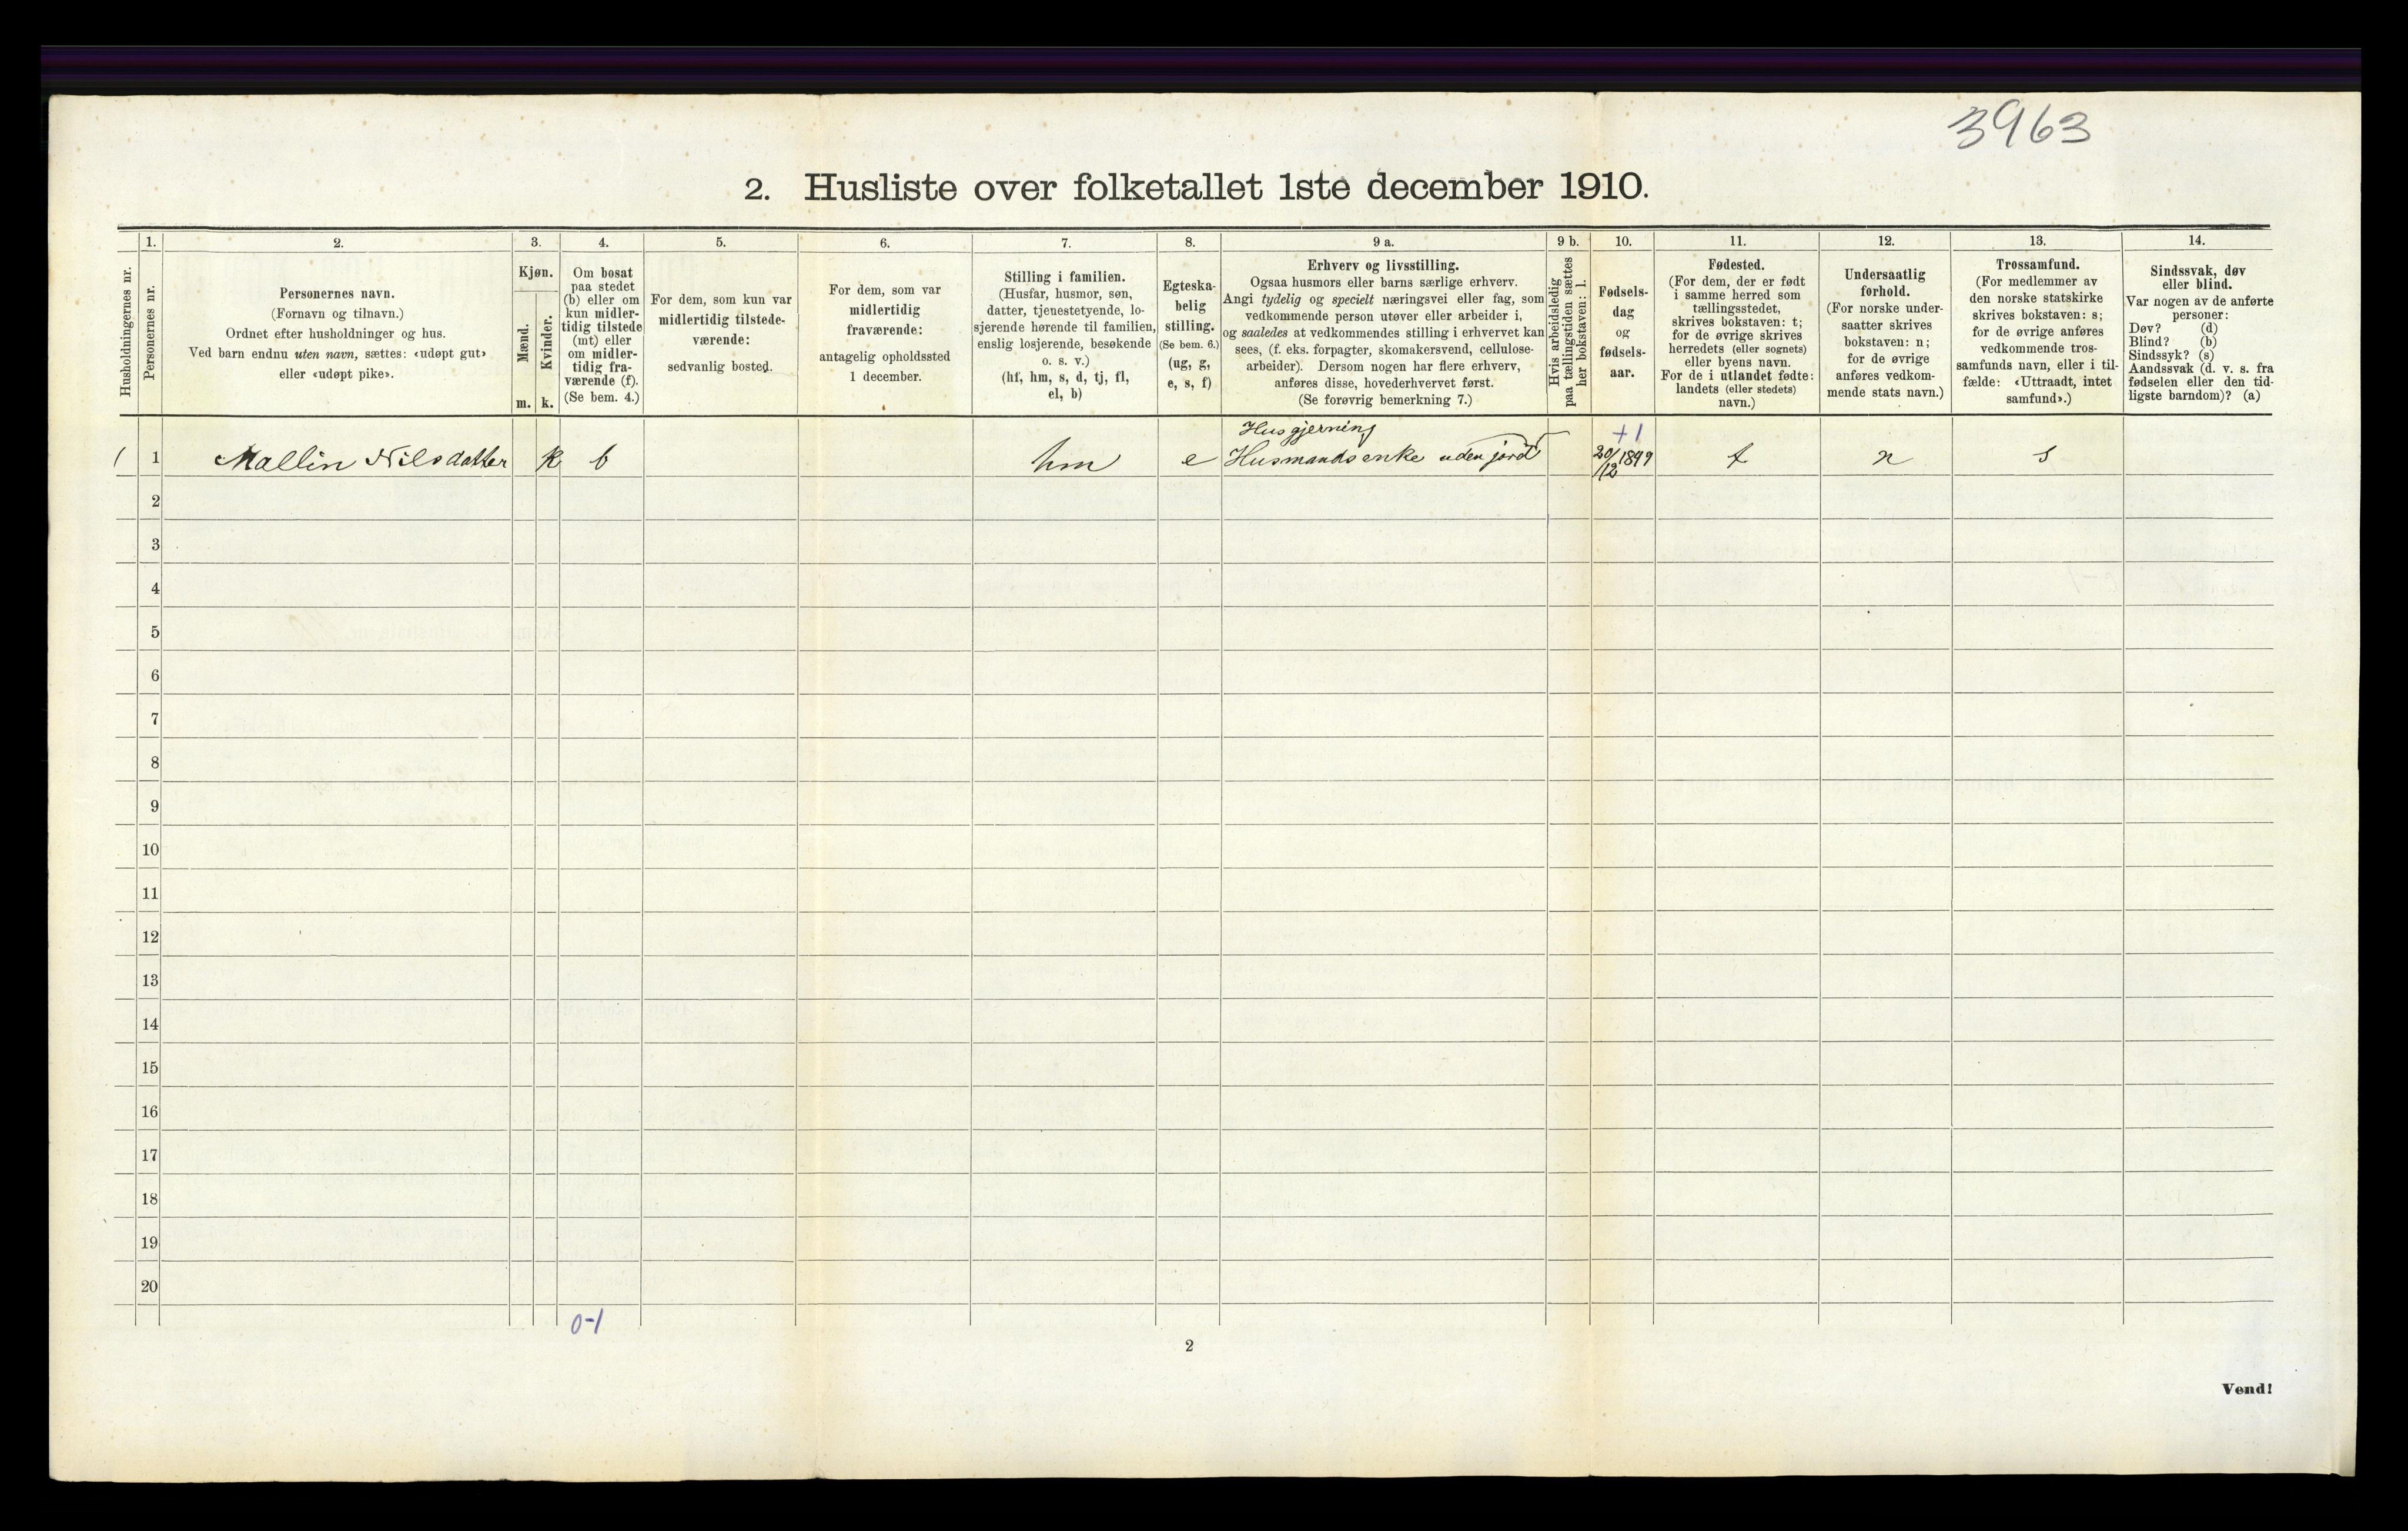 3963
2. Husliste over folketallet 1ste december 1910.
Husholdningernes nr.
1.
Personernes nr.
2.
Personernes navn.
(Fornavn og tilnavn.)
Ordnet efter husholdninger og hus.
Ved barn endnu uten navn, sættes: «udøpt gut»
eller «udøpt pike».
3.
Kjøn.
Mænd.
m.
Kvinder.
k.
4.
Om bosat
paa stedet
(b) eller om
kun midler-
tidig tilstede
(mt) eller
om midler-
tidig fra-
værende (f).
(Se bem. 4.)
5.
For dem, som kun var
midlertidig tilstede-
værende:
sedvanlig bosted.
6.
For dem, som var
midlertidig
fraværende:
antagelig opholdssted
1 december.
7.
Stilling i familien.
(Husfar, husmor, søn,
datter, tjenestetyende, lo-
sjerende hørende til familien,
enslig losjerende, besøkende
o. s. v.)
(hf, hm, s, d, tj, fl,
el, b)
8.
Egteska-
belig
stilling.
(Se bem. 6.)
(ug, g,
e, s, f)
9 a.
Erhverv og livsstilling.
Ogsaa husmors eller barns særlige erhverv.
Angi tydelig og specielt næringsvei eller fag, som
vedkommende person utøver eller arbeider i,
og saaledes at vedkommendes stilling i erhvervet kan
sees, (f. eks. forpagter, skomakersvend, cellulose-
arbeider). Dersom nogen har flere erhverv,
anføres disse, hovederhvervet først.
(Se forøvrig bemerkning 7.)
9 b.
Hvis arbeidsledig
paa tællingstiden sættes
her bokstaven: l.
10.
Fødsels-
dag
og
fødsels-
aar.
11.
Fødested.
(For dem, der er født
i samme herred som
tællingsstedet,
skrives bokstaven: t;
for de øvrige skrives
herredets (eller sognets)
eller byens navn.
For de i utlandet fødte:
landets (eller stedets)
navn.)
12.
Undersaatlig
forhold.
(For norske under-
saatter skrives
bokstaven: n;
for de øvrige
anføres vedkom-
mende stats navn.)
13.
Trossamfund.
(For medlemmer av
den norske statskirke
skrives bokstaven: s;
for de øvrige anføres
vedkommende tros-
samfunds navn, eller i til-
fælde: «Uttraadt, intet
samfund».)
14.
Sindssvak, døv
eller blind.
Var nogen av de anførte
personer:
Døv? (d)
Blind? (b)
Sindssyk? (s)
Aandssvak (d. v. s. fra
fødselen eller den tid-
ligste barndom)? (a)
Husgjerning +1
1 1 Mallin Nilsdatter k b hm e Husmandsenke uden jord 20/12 1849 t n s
2
3
4
5
6
7
8
9
10
11
12
13
14
15
16
17
18
19
20
0-1
2
Vend!